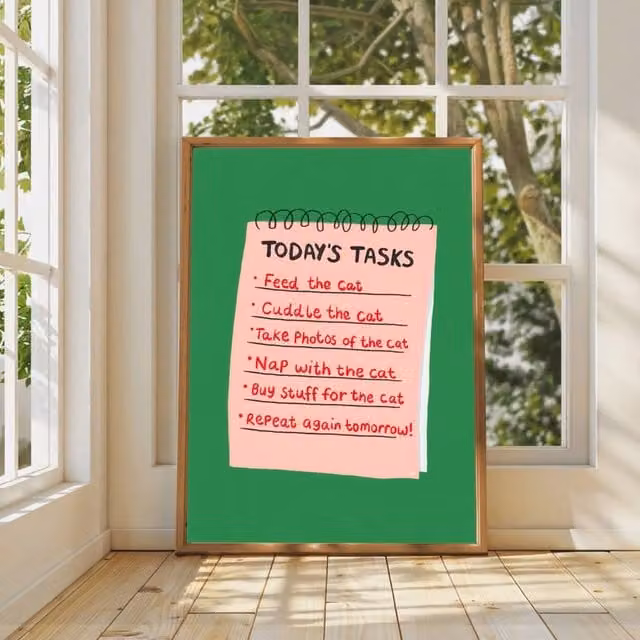 TODAY'S TASKS
• Feed the cat
• Cuddle the cat
• Take Photos of the cat
• Nap with the cat
• Buy stuff for the cat
• Repeat again tomorrow!